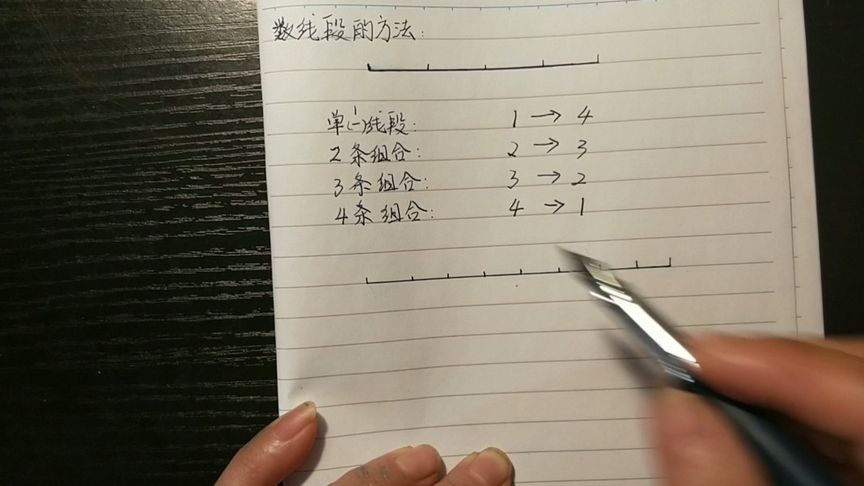 数线段的方法:
单(一)线段: 1 → 4
2条组合: 2 → 3
3条组合: 3 → 2
4条组合: 4 → 1